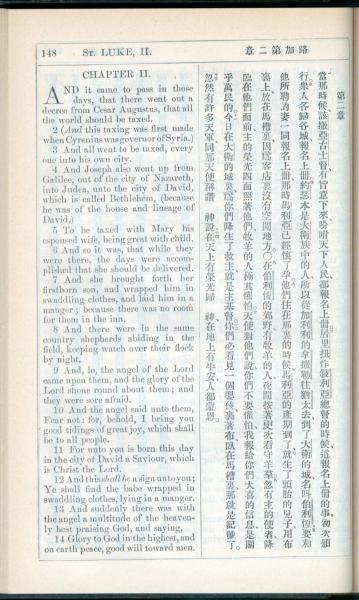 148 ST. LUKE, II. 章二第加路
CHAPTER II.
AND it came to pass in those
days, that there went out a
decree from Cesar Augustus, that all
the world should be taxed.
2 (And this taxing was first made
when Cyrenius was governor of Syria.)
3 And all went to be taxed, every
one into his own city.
4 And Joseph also went up from
Galilee, out of the city of Nazareth,
into Judea, unto the city of David,
which is called Bethlehem, (because
he was of the house and lineage of
David,)
5 To be taxed with Mary his
espoused wife, being great with child.
6 And so it was, that while they
were there, the days were accom-
plished that she should be delivered.
7 And she brought forth her
firstborn son, and wrapped him in
swaddling clothes, and laid him in a
manger; because there was no room
for them in the inn.
8 And there were in the same
country shepherds abiding in the
field, keeping watch over their flock
by night.
9 And, lo, the angel of the Lord
came upon them, and the glory of the
Lord shone round about them; and
they were sore afraid.
10 And the angel said unto them,
Fear not: for, behold, I bring you
good tidings of great joy, which shall
be to all people.
11 For unto you is born this day
in the city of David a Saviour, which
is Christ the Lord.
12 And this shall be a sign unto you;
Ye shall find the babe wrapped in
swaddling clothes, lying in a manger.
13 And suddenly there was with
the angel a multitude of the heaven-
ly host praising God, and saying,
14 Glory to God in the highest, and
on earth peace, good will toward men.
第二章
當那時候、該撒亞古士督有旨意下來、吩咐天下人民都報名上冊、居里扭作叙利亞總督的時候、這報名上冊的事、初次頒
行、衆人各歸各城、報名上冊、約瑟本是大衛族中的人、所以從加利利的拿撒勒往猶太去、到了大衛的城、名叫伯利恆、要和
他所聘的妻馬利亞、一同報名上冊、那時馬利亞已經懷了孕、他們住在那裏的時候、馬利亞的產期到了、就生了頭胎的兒子、用布
裹上、放在馬槽裏、因爲客店裏沒有空閒地方○在伯利恆的郊野、有牧羊的人、夜間按著更次看守羊羣、忽有主的使者降
臨在他們面前、主的榮光四面照著他們、牧羊的人極其懼怕、天使對他們說、你們不要懼怕、我報給你們大喜的信息、是關
乎萬民的、今日在大衛的城裏、爲你們降生了救主、就是主基督、你們必看見一個嬰孩、裹著布、臥在馬槽裏、那就是記號了、
忽然有許多天軍、同那天使讚美 神說、在天上有榮光歸 神、在地上有平安、人都蒙恩、